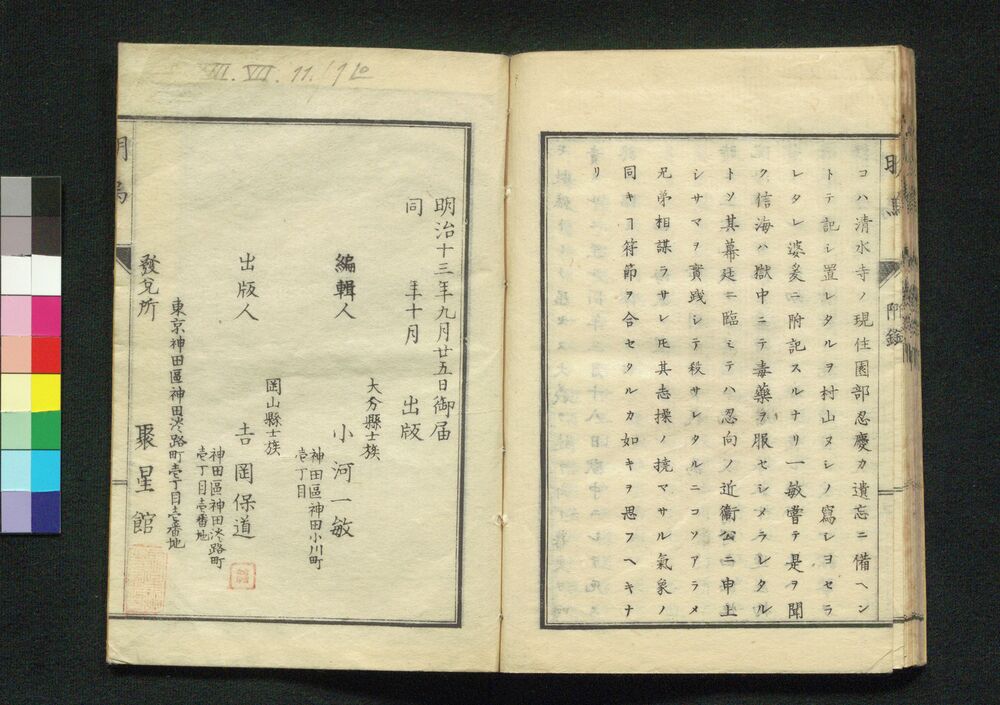 コハ清水寺ノ現住園部忍慶カ遺忘ニ備ヘン
トテ記シ置レタルヲ村山ヌシノ寫シヨセラ
レタレ婆爰ニ附記スルナリ一敏嘗テ是ヲ聞
ク信海ハ獄中ニテ毒藥ヲ服セシメラレタル
トソ其幕廷ニ臨ミテハ忍向ノ近衞公ニ申上
シサマヲ實踐シテ殺サレタルニコソアラメ
兄弟相謀ラサレ𪜈其志操ノ撓マサル氣象ノ
同キヿ符節ヲ合セタルカ如キヲ思フヘキナ
リ
附錄
明治十三年九月廿五日御届
同 年十月 出版
大分縣士族
編輯人 小河一敏
神田區神田小川町
壱丁目
岡山縣士族
出版人 吉岡保道
神田區神田淡路町
壱丁目壱番地
東京神田區神田淡路町壱丁目壱番地
發兌所 聚星館